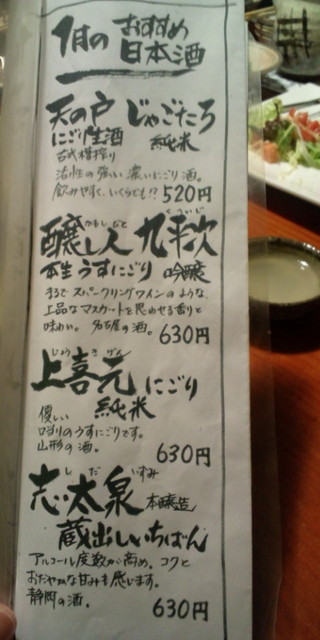 1月の おすすめ
日本酒
天の戸 じゃごたろ
にごり生酒 純米
古式槽搾り
活性の強い濃いにごり酒。
飲みやすく、いくらでも!? 520円
かもし びと くへいじ
醸し人 九平次
本生 うすにごり 吟醸
まるでスパークリングワインのような、
上品なマスカートを思わせる香りと
味わい。 名古屋の酒。 630円
じょう き げん
上喜元 にごり
純米
優しい
口当りのうすにごりです。
山形の酒。 630円
し だ いずみ
志太泉 本醸造
蔵出しいちばん
アルコール度数が高め。コクと
おだやかな甘みを感じます。
静岡の酒。
630円